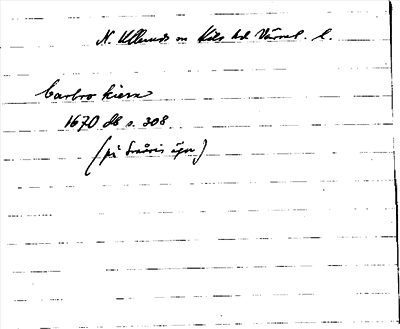 N. Ullerud sn Kils hd Värml. l.
Carbro kiern
1670 db s. 308
(på Svåvis ägor)